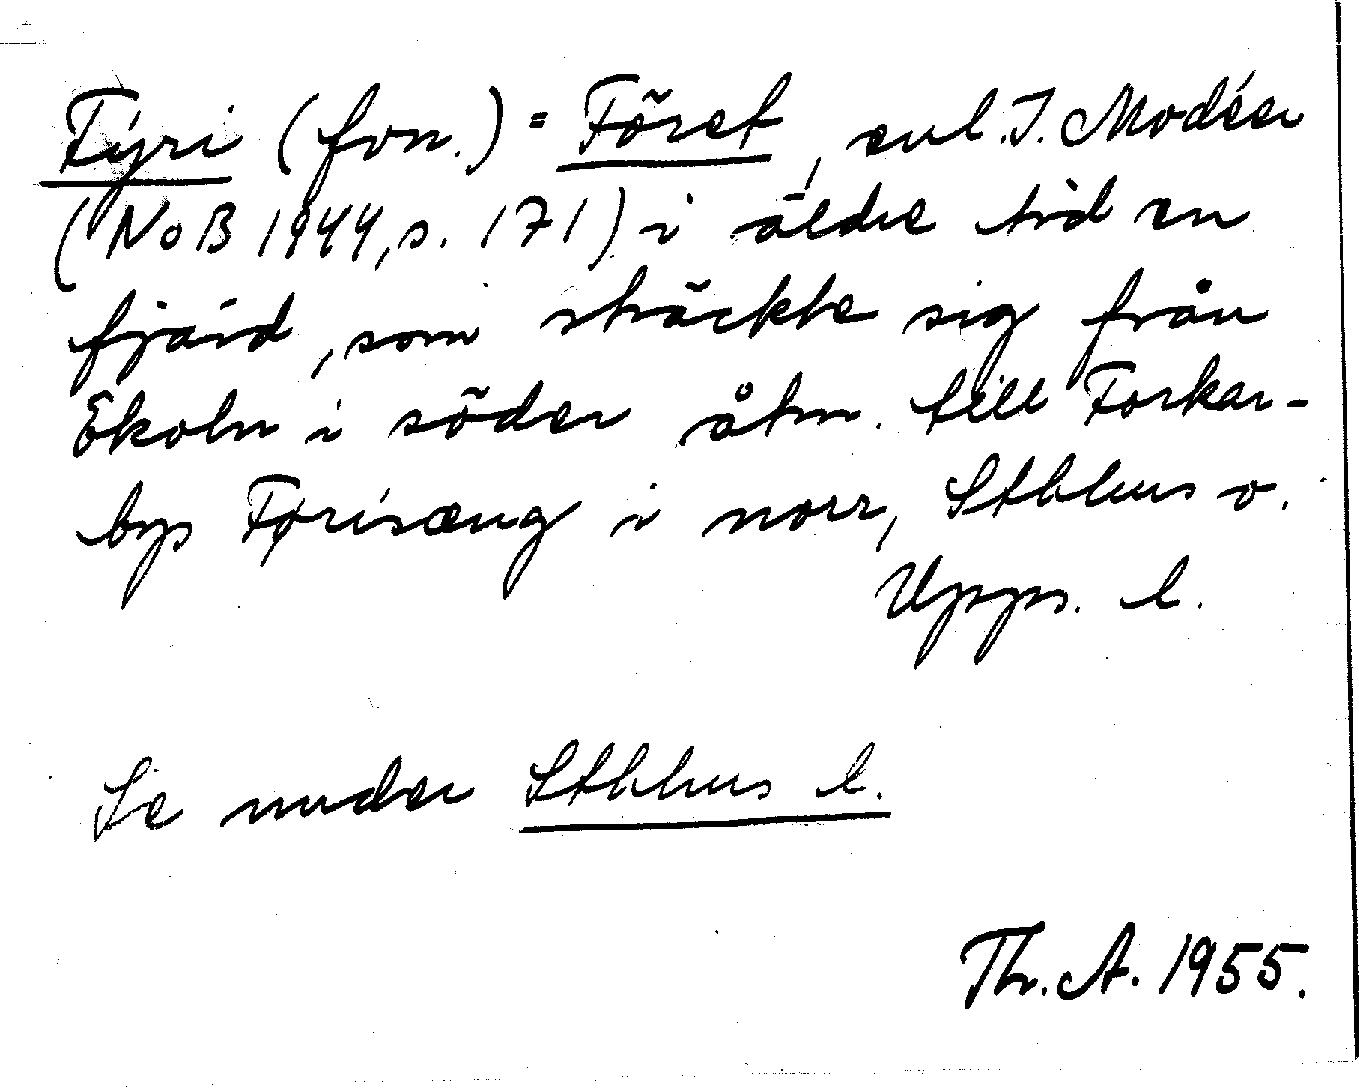 Fýri (fvn.) = Föret, enl. I. Modéer
(NoB 1944, s. 171) i äldre tid en
fjärd, som sträckte sig från
Ekoln i söder åtm. till Forkar-
bys Førisæng i norr, Sthlms o.
Upps. l.
Se under Sthlms l.
Th. A. 1955.